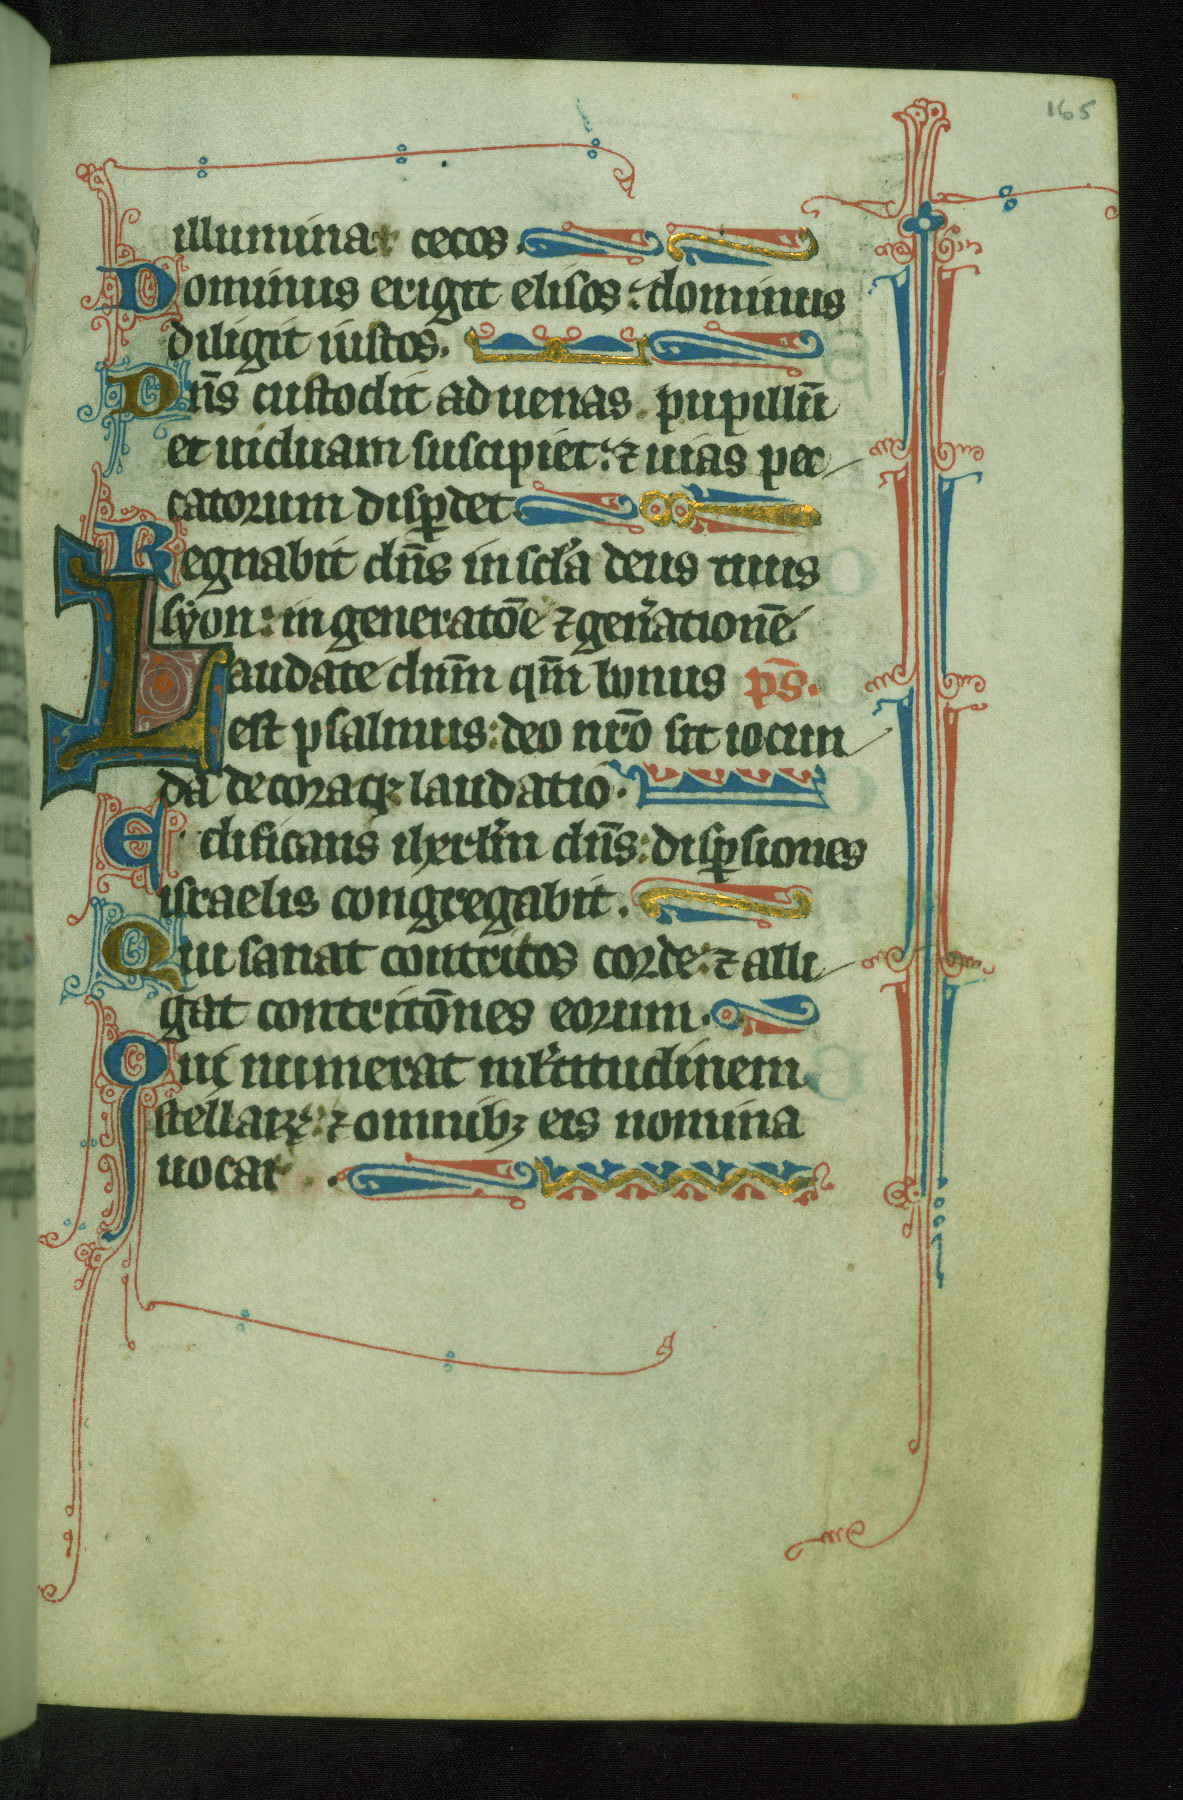 165
illuminat cecos.
Dominus erigit elisos: dominus
diligit iustos.
Dn̄s custodit aduenas pupillū
et uiduam suscipiet: ⁊ uias pec
catorum disꝑdet
Regnabit dn̄s in scl̓a deus tuus
syon: in generatōe ⁊ gen̓ationē
Laudate dn̄m qm̄ bonus ps̄.
est psalmus: deo nr̄o sit iocun
da decoraqꝫ laudatio.
Edificans ihrl̓m dn̄s: disꝑsiones
israelis congregabit.
Qui sanat contritos corde: ⁊ alli
gat contritōnes eorum.
Qui numerat ml̓titudinem
stellaꝝ: ⁊ omnibꝫ eis nomina
uocat.